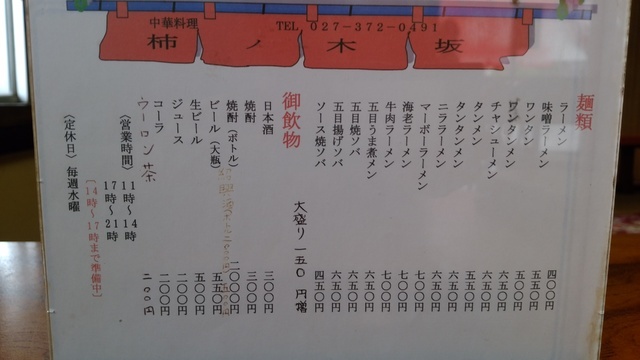 中華料理
TEL 027-372-0491
柿ノ木坂
麺類
ラーメン 四〇〇円
味噌ラーメン 五五〇円
ワンタン 五五〇円
ワンタンメン 六五〇円
チャシューメン 六五〇円
タンメン 五五〇円
タンタンメン 六五〇円
ニララーメン 六五〇円
マーボーラーメン 七〇〇円
海老ラーメン 七〇〇円
牛肉ラーメン 七〇〇円
五目うま煮メン 六五〇円
五目焼ソバ 六五〇円
五目揚げソバ 六五〇円
ソース焼ソバ 四五〇円
大盛り一五〇円増
御飲物
日本酒 三〇〇円
焼酎 三〇〇円
焼酎(ボトル)
ビール(大瓶) 五五〇円
生ビール 五〇〇円
ジュース 二〇〇円
コーラ 二〇〇円
ウーロン茶 二〇〇円
〈営業時間〉 11時〜14時
17時〜21時
〔14時〜17時まで準備中〕
〈定休日〉毎週水曜